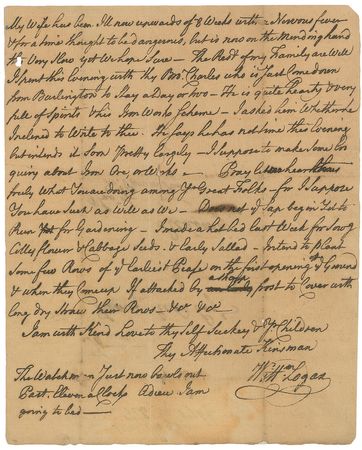 My Wife has been Ill now upwards of 8 Weeks with a Nervous fever
& for a time thought to be dangerous, but is now on the Mending hand
tho Very Slow yet We hope Sure — The Rest of my Family are Well
I spent this Evening with thy Bro. Charles who is just Come down
from Burlington to Stay a Day or two — He is quite hearty & very
full of Spirits & his Iron Works Scheme — I asked him Whether he
Inclined to Write to thee. He says he has not time this Evening
but intends it Soon Pretty Largely — I suppose to make Some En
quiry about Iron Ore, or Works — Pray let us hear
truly What You are doing among ye Great Folks — for I Suppose
You have Such as Well as We — not Sap begin Yet to
Run for Gardening — I made a hot bed last Week for Some
Colly flower & Cabbage Seeds & Early Sallad — Intend to Plant
Some few Rows of ye Earliest Pease on the first opening of ye Ground
& when they Come up If attacked by a sharp frost to Cover with
long dry Straw their Rows — &c &c
I am with Kind Love to thy Self Seekey & ye Children
Thy Affectionate Kinsman
Wm Logan
The Watchman Just now bawls out
Past Eleven a Clock Adieu I am
going to bed —